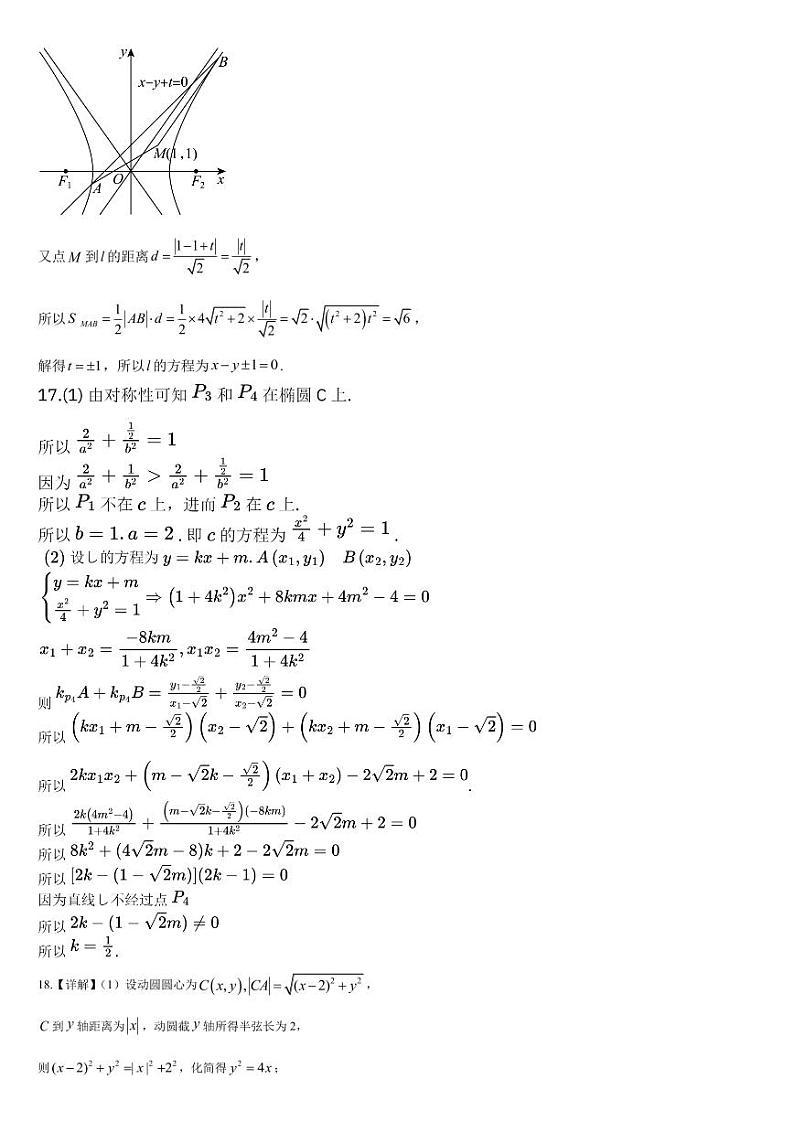 y
B
x−y+t=0
M(1,1)
F₁ A O F₂ x
又点 M 到 l 的距离 d = |1−1+t|/√2 = |t|/√2，
所以 S_{MAB} = 1/2|AB|·d = 1/2×4√(t²+2)×|t|/√2 = √2·√((t²+2)t²) = √6，
解得 t = ±1，所以 l 的方程为 x − y ±1 = 0.
17.(1) 由对称性可知 P₃ 和 P₄ 在椭圆 C 上.
所以 2/a² + (1/2)/b² = 1
因为 2/a² + 1/b² > 2/a² + (1/2)/b² = 1
所以 P₁ 不在 c 上，进而 P₂ 在 c 上.
所以 b = 1. a = 2 . 即 c 的方程为 x²/4 + y² = 1 .
(2) 设乚的方程为 y = kx + m. A (x₁, y₁) B (x₂, y₂)
{y = kx + m
x²/4 + y² = 1 ⇒ (1 + 4k²)x² + 8kmx + 4m² − 4 = 0
x₁ + x₂ = −8km/(1 + 4k²), x₁x₂ = (4m² − 4)/(1 + 4k²)
则 k_{p₄}A + k_{p₄}B = (y₁−√2/2)/(x₁−√2) + (y₂−√2/2)/(x₂−√2) = 0
所以 (kx₁ + m − √2/2)(x₂ − √2) + (kx₂ + m − √2/2)(x₁ − √2) = 0
所以 2kx₁x₂ + (m − √2k − √2/2)(x₁ + x₂) − 2√2m + 2 = 0.
所以 2k(4m²−4)/(1+4k²) + (m−√2k−√2/2)(−8km)/(1+4k²) − 2√2m + 2 = 0
所以 8k² + (4√2m − 8)k + 2 − 2√2m = 0
所以 [2k − (1 − √2m)](2k − 1) = 0
因为直线乚不经过点 P₄
所以 2k − (1 − √2m) ≠ 0
所以 k = 1/2 .
18.【详解】（1）设动圆圆心为 C(x, y), |CA| = √((x−2)² + y²)，
C 到 y 轴距离为 |x|，动圆截 y 轴所得半弦长为 2，
则 (x−2)² + y² =| x |² +2²，化简得 y² = 4x；